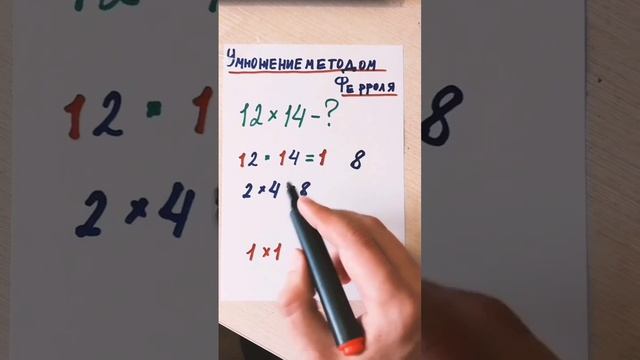 Умножение методом
Ферроля
12 × 14 – ?
12 • 14 = 1 8
2 × 4 = 8
1 × 1